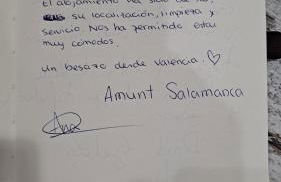 El alojamiento ha sido
su localización, limpieza y
servicio nos ha permitido estar
muy cómodos.
Un besazo desde Valencia. ♡
Amunt Salamanca
Ana